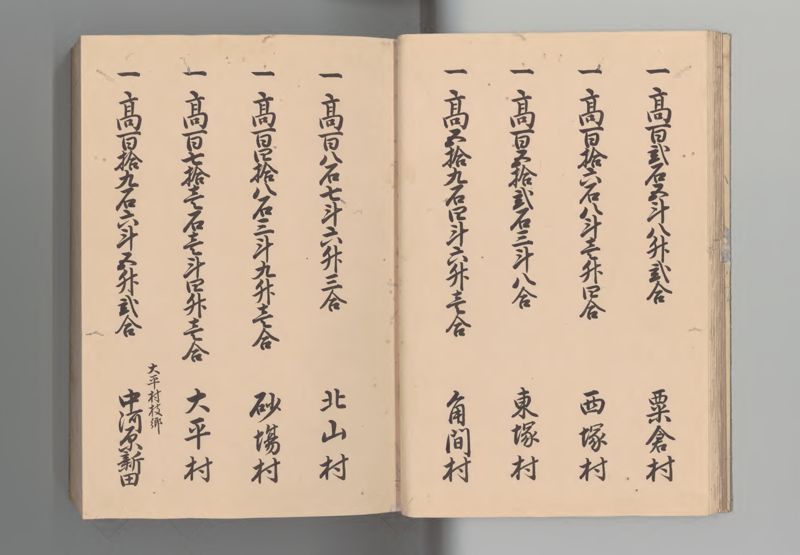 一 高百弐石五斗八升弐合 粟倉村
一 高百拾六石八斗壱升四合 西塚村
一 高百五拾弐石三斗八合 東塚村
一 高五拾九石四斗六升壱合 角間村
一 高百八石七斗六升三合 北山村
一 高百四拾八石三斗九升壱合 砂場村
一 高百七拾壱石壱斗四升壱合 大平村
大平村枝郷
一 高百拾九石六斗五升弐合 中河原新田